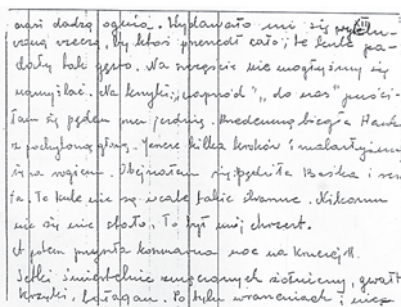 nasi dadzą ognia. Wydawało mi się wyklu- XII
czoną rzeczą, by ktoś przeszedł cało; te kule pa-
dały tak gęsto. Na szczęście nie mogłyśmy się
namyślać. Na krzyki: „naprzód", „do nas" puści-
łam się pędem przez jezdnię. Przede mną biegła
z pochyloną głową. Jeszcze kilka kroków i znalazłyśmy
się za rogiem. Obejrzałam się, pędziła Baśka i
To kule nie są wcale takie straszne. Nikomu
nic się nie stało. To był mój chrzest.
A potem przyszła koszmarna noc na
Setki śmiertelnie zmęczonych żołnierzy, gwałt
krzyki, bałagan. Po tylu wrażeniach i